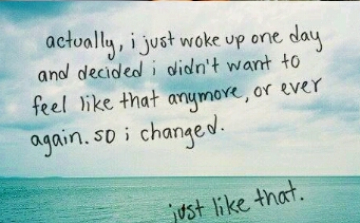 actually, i just woke up one day
and decided i didn't want to
feel like that anymore, or ever
again. so i changed.
just like that.